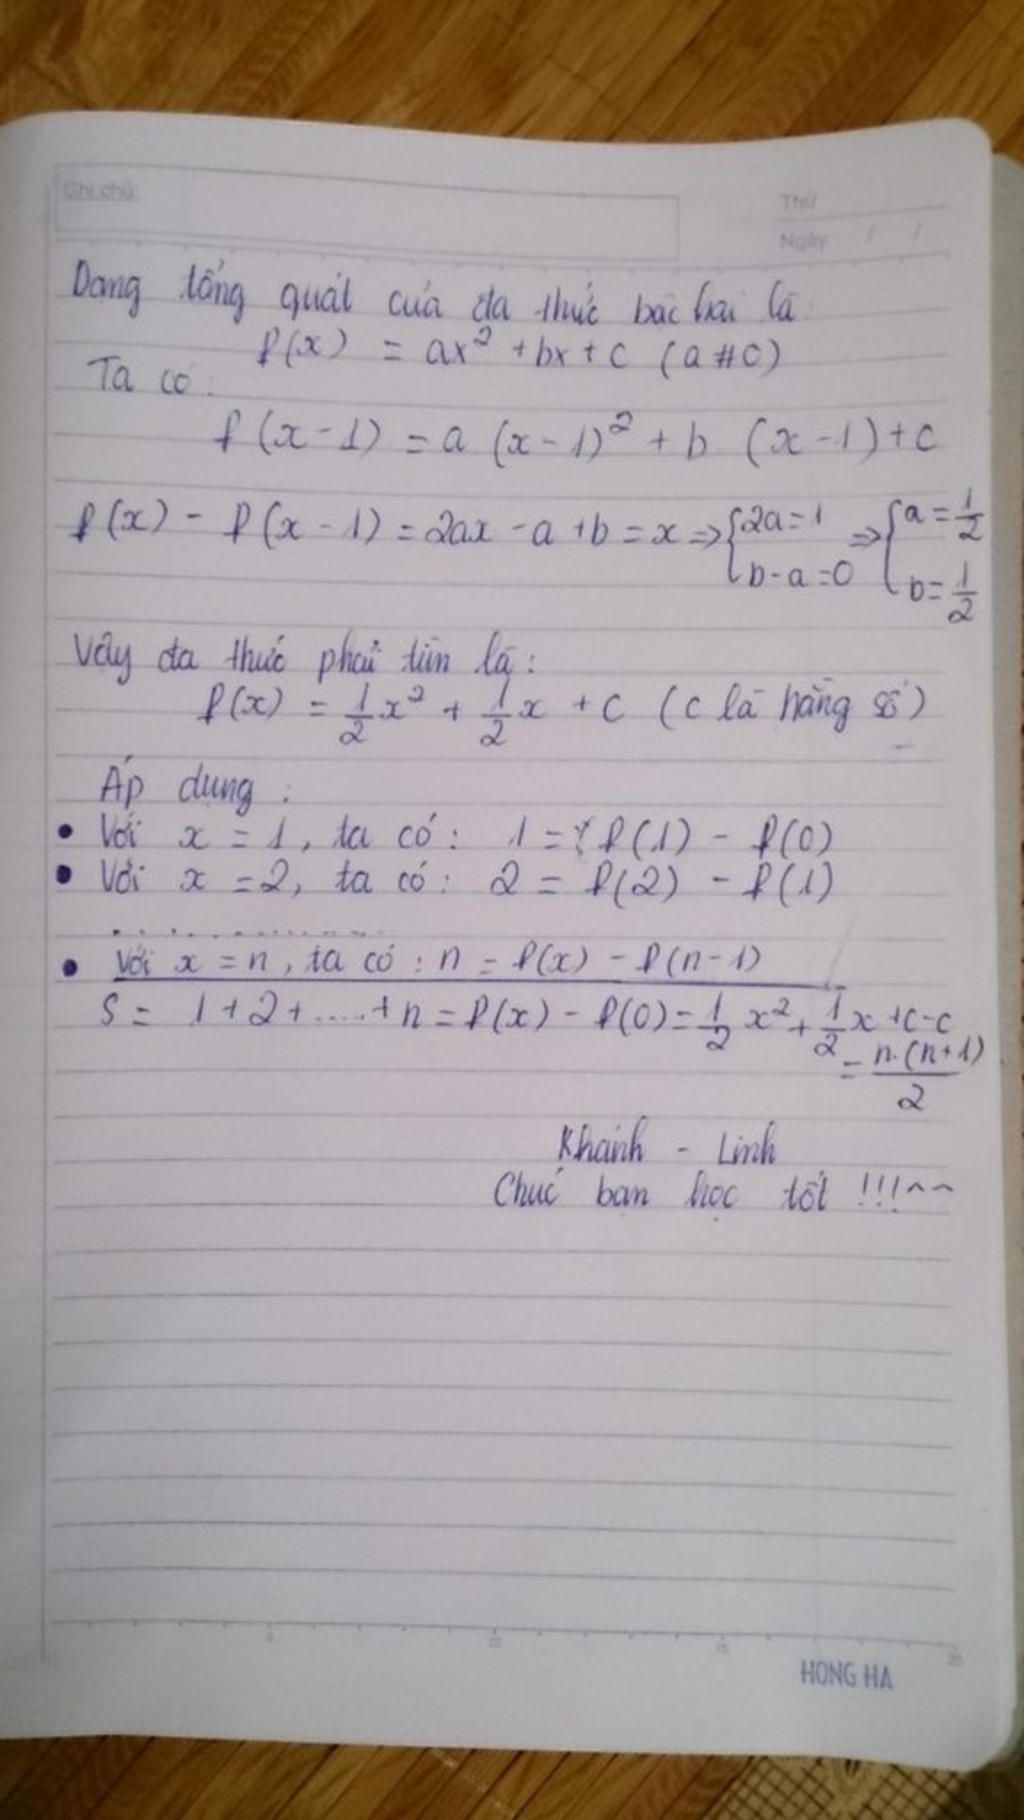 Ghi chú:
Thứ
Ngày / /
Dạng tổng quát của đa thức bậc hai là
f(x) = ax² + bx + c (a # 0)
Ta có:
f(x-1) = a (x-1)² + b (x-1) + c
f(x) - f(x-1) = 2ax - a + b = x => { 2a = 1 => { a = 1/2
b - a = 0 b = 1/2
Vậy đa thức phải tìm là:
f(x) = 1/2 x² + 1/2 x + c (c là hằng số)
Áp dụng:
• Với x = 1, ta có: 1 = f(1) - f(0)
• Với x = 2, ta có: 2 = f(2) - f(1)
. . . . . . . . . . . .
• Với x = n, ta có: n = f(x) - f(n-1)
S = 1 + 2 + ..... + n = f(x) - f(0) = 1/2 x² + 1/2 x + c - c
= n.(n+1)/2
Khánh - Linh
Chúc bạn học tốt !!!^^
5 10 15 20
HONG HA